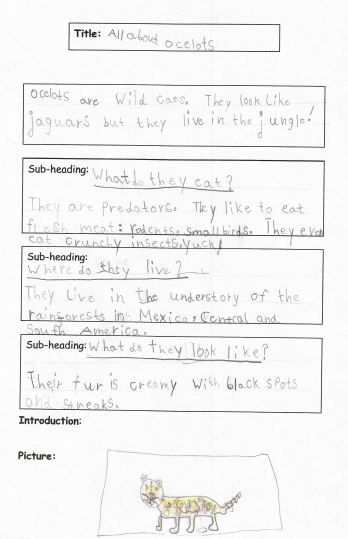 Title: All about ocelots
ocelots are wild cats. They look like
jaguars but they live in the jungle!
Sub-heading: What do they eat?
They are predators. They like to eat
fresh meat: rodents, small birds. They even
eat crunchy insects, yuck!
Sub-heading:
Where do they live?
They live in the understory of the
rainforests in Mexico, Central and
South America.
Sub-heading: What do they look like?
Their fur is creamy with black spots
and streaks.
Introduction:
Picture: